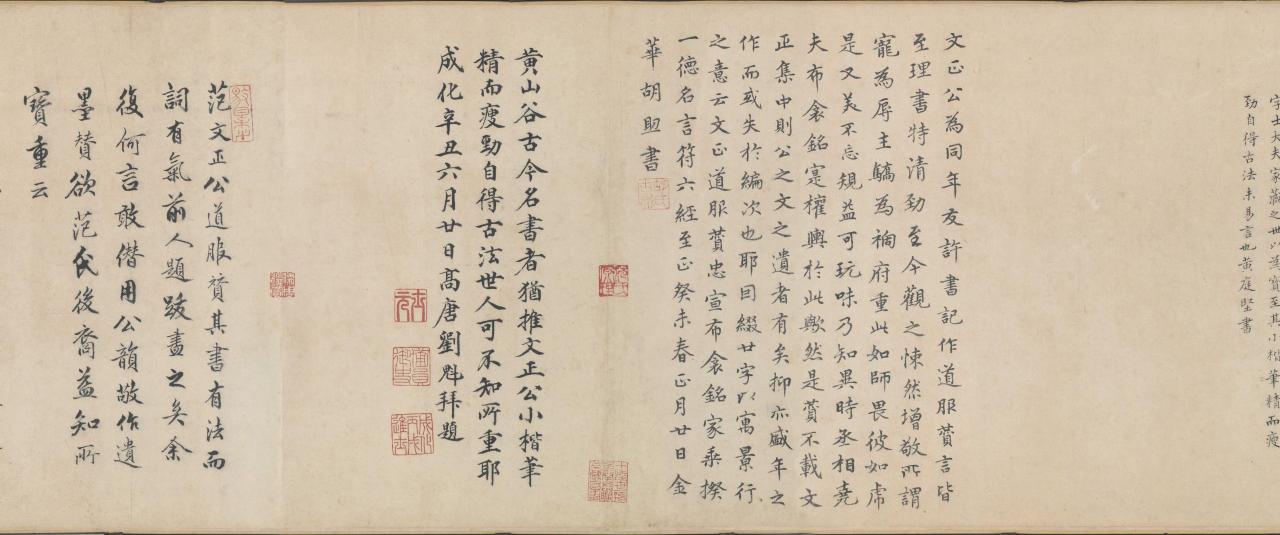 字士大夫家藏之世以為寶至其小楷筆精而瘦
勁自得古法未易言也黃庭堅書
文正公為同年友許書記作道服贊言皆
至理書特清勁至今觀之悚然增敬所謂
寵為辱主驕為禍府重此如師畏彼如虎
是又美不忘規益可玩味乃知異時丞相堯
夫布衾銘寔權輿於此歟然是贊不載文
正集中則公之文之遺者有矣抑亦盛年之
作而或失於編次也耶因綴廿字以寓景行
之意云文正道服贊忠宣布衾銘家乘揆
一德名言符六經至正癸未春正月廿日金
華胡助書
黃山谷古今名書者猶推文正公小楷筆
精而瘦勁自得古法世人可不知所重耶
成化辛丑六月廿日高唐劉魁拜題
范文正公道服贊其書有法而
詞有氣前人題跋盡之矣余
復何言敢僭用公韻敬作遺
墨贊欲范氏後裔益知所
寶重云